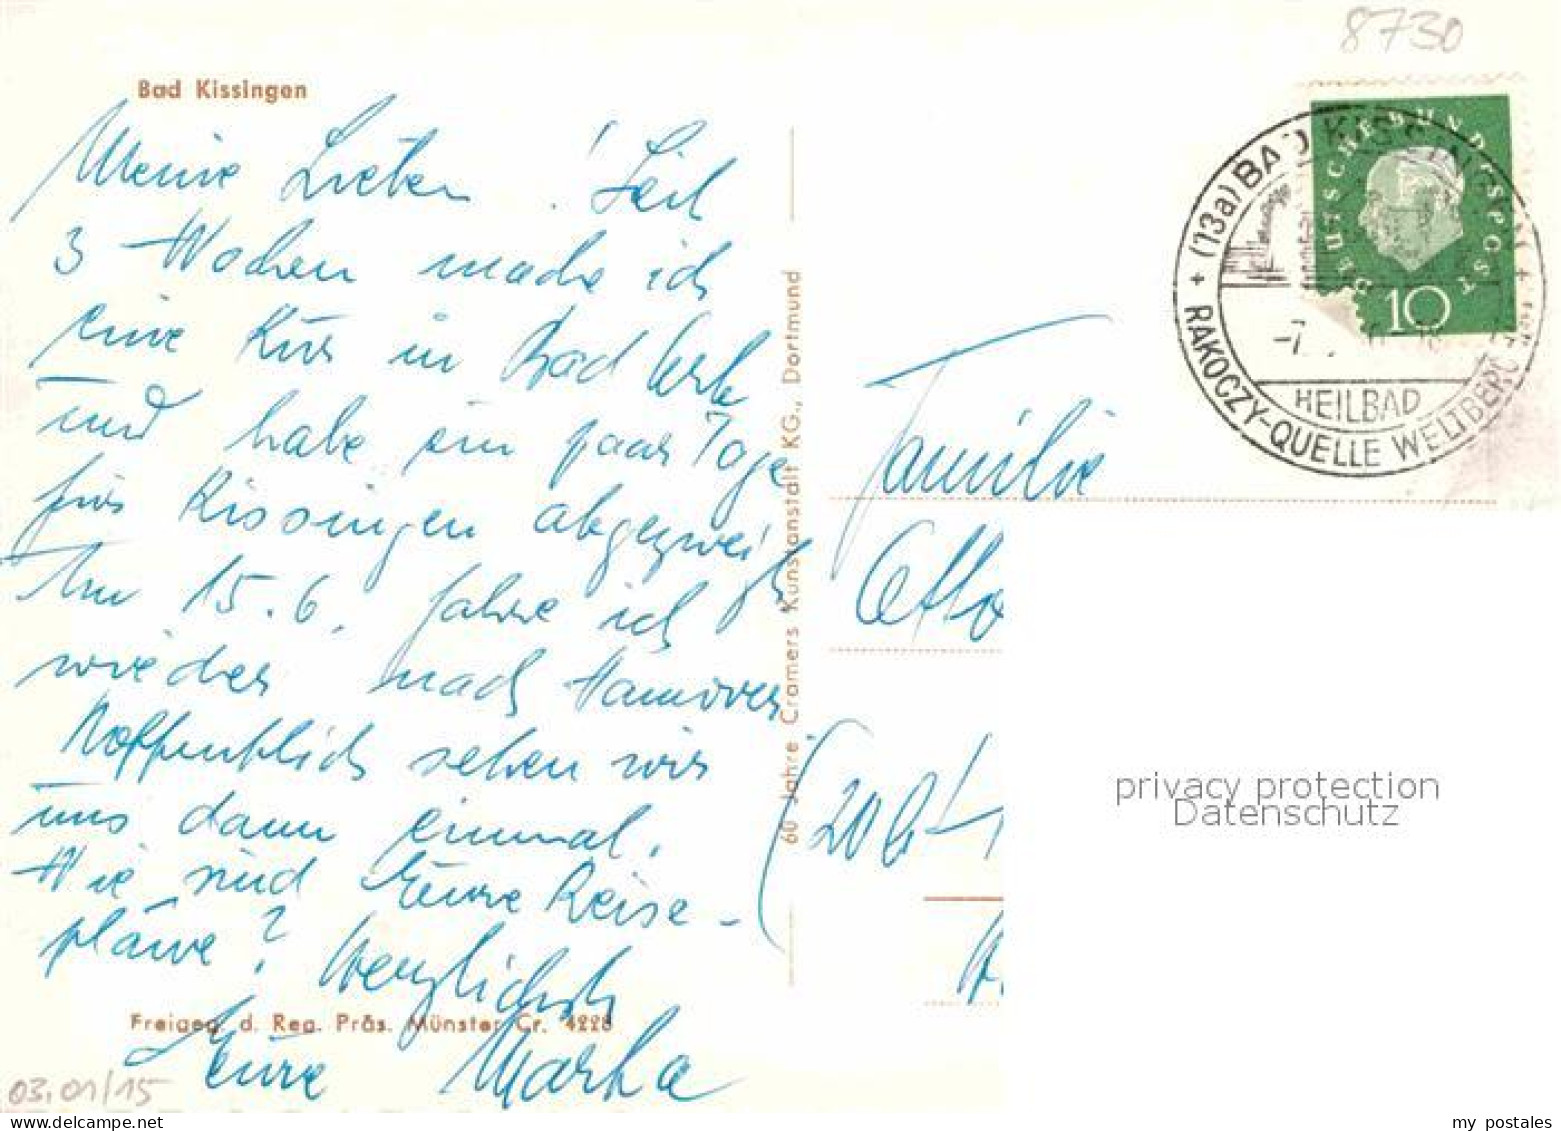 8730
Bad Kissingen
Meine Lieben! Seit
3 Wochen mache ich
eine Kur in Bad Orb
und habe ein paar Tage
für Kissingen abgezweigt
Am 15.6. fahre ich
wieder nach Hannover
Hoffentlich sehen wir
uns dann einmal.
Wie sind Eure Reise-
pläne? Herzlichst
Eure Marta
Freigeg. d. Reg. Präs. Münster Cr. 4228
03.01/15
60 Jahre Cramers Kunstanstalt KG., Dortmund
DEUTSCHE BUNDESPOST
10
+ (13a) BAD KISSINGEN +
-7.
HEILBAD
RAKOCZY-QUELLE WELTBERÜHMT
Familie
Otto
(20b)
privacy protection
Datenschutz
my postales